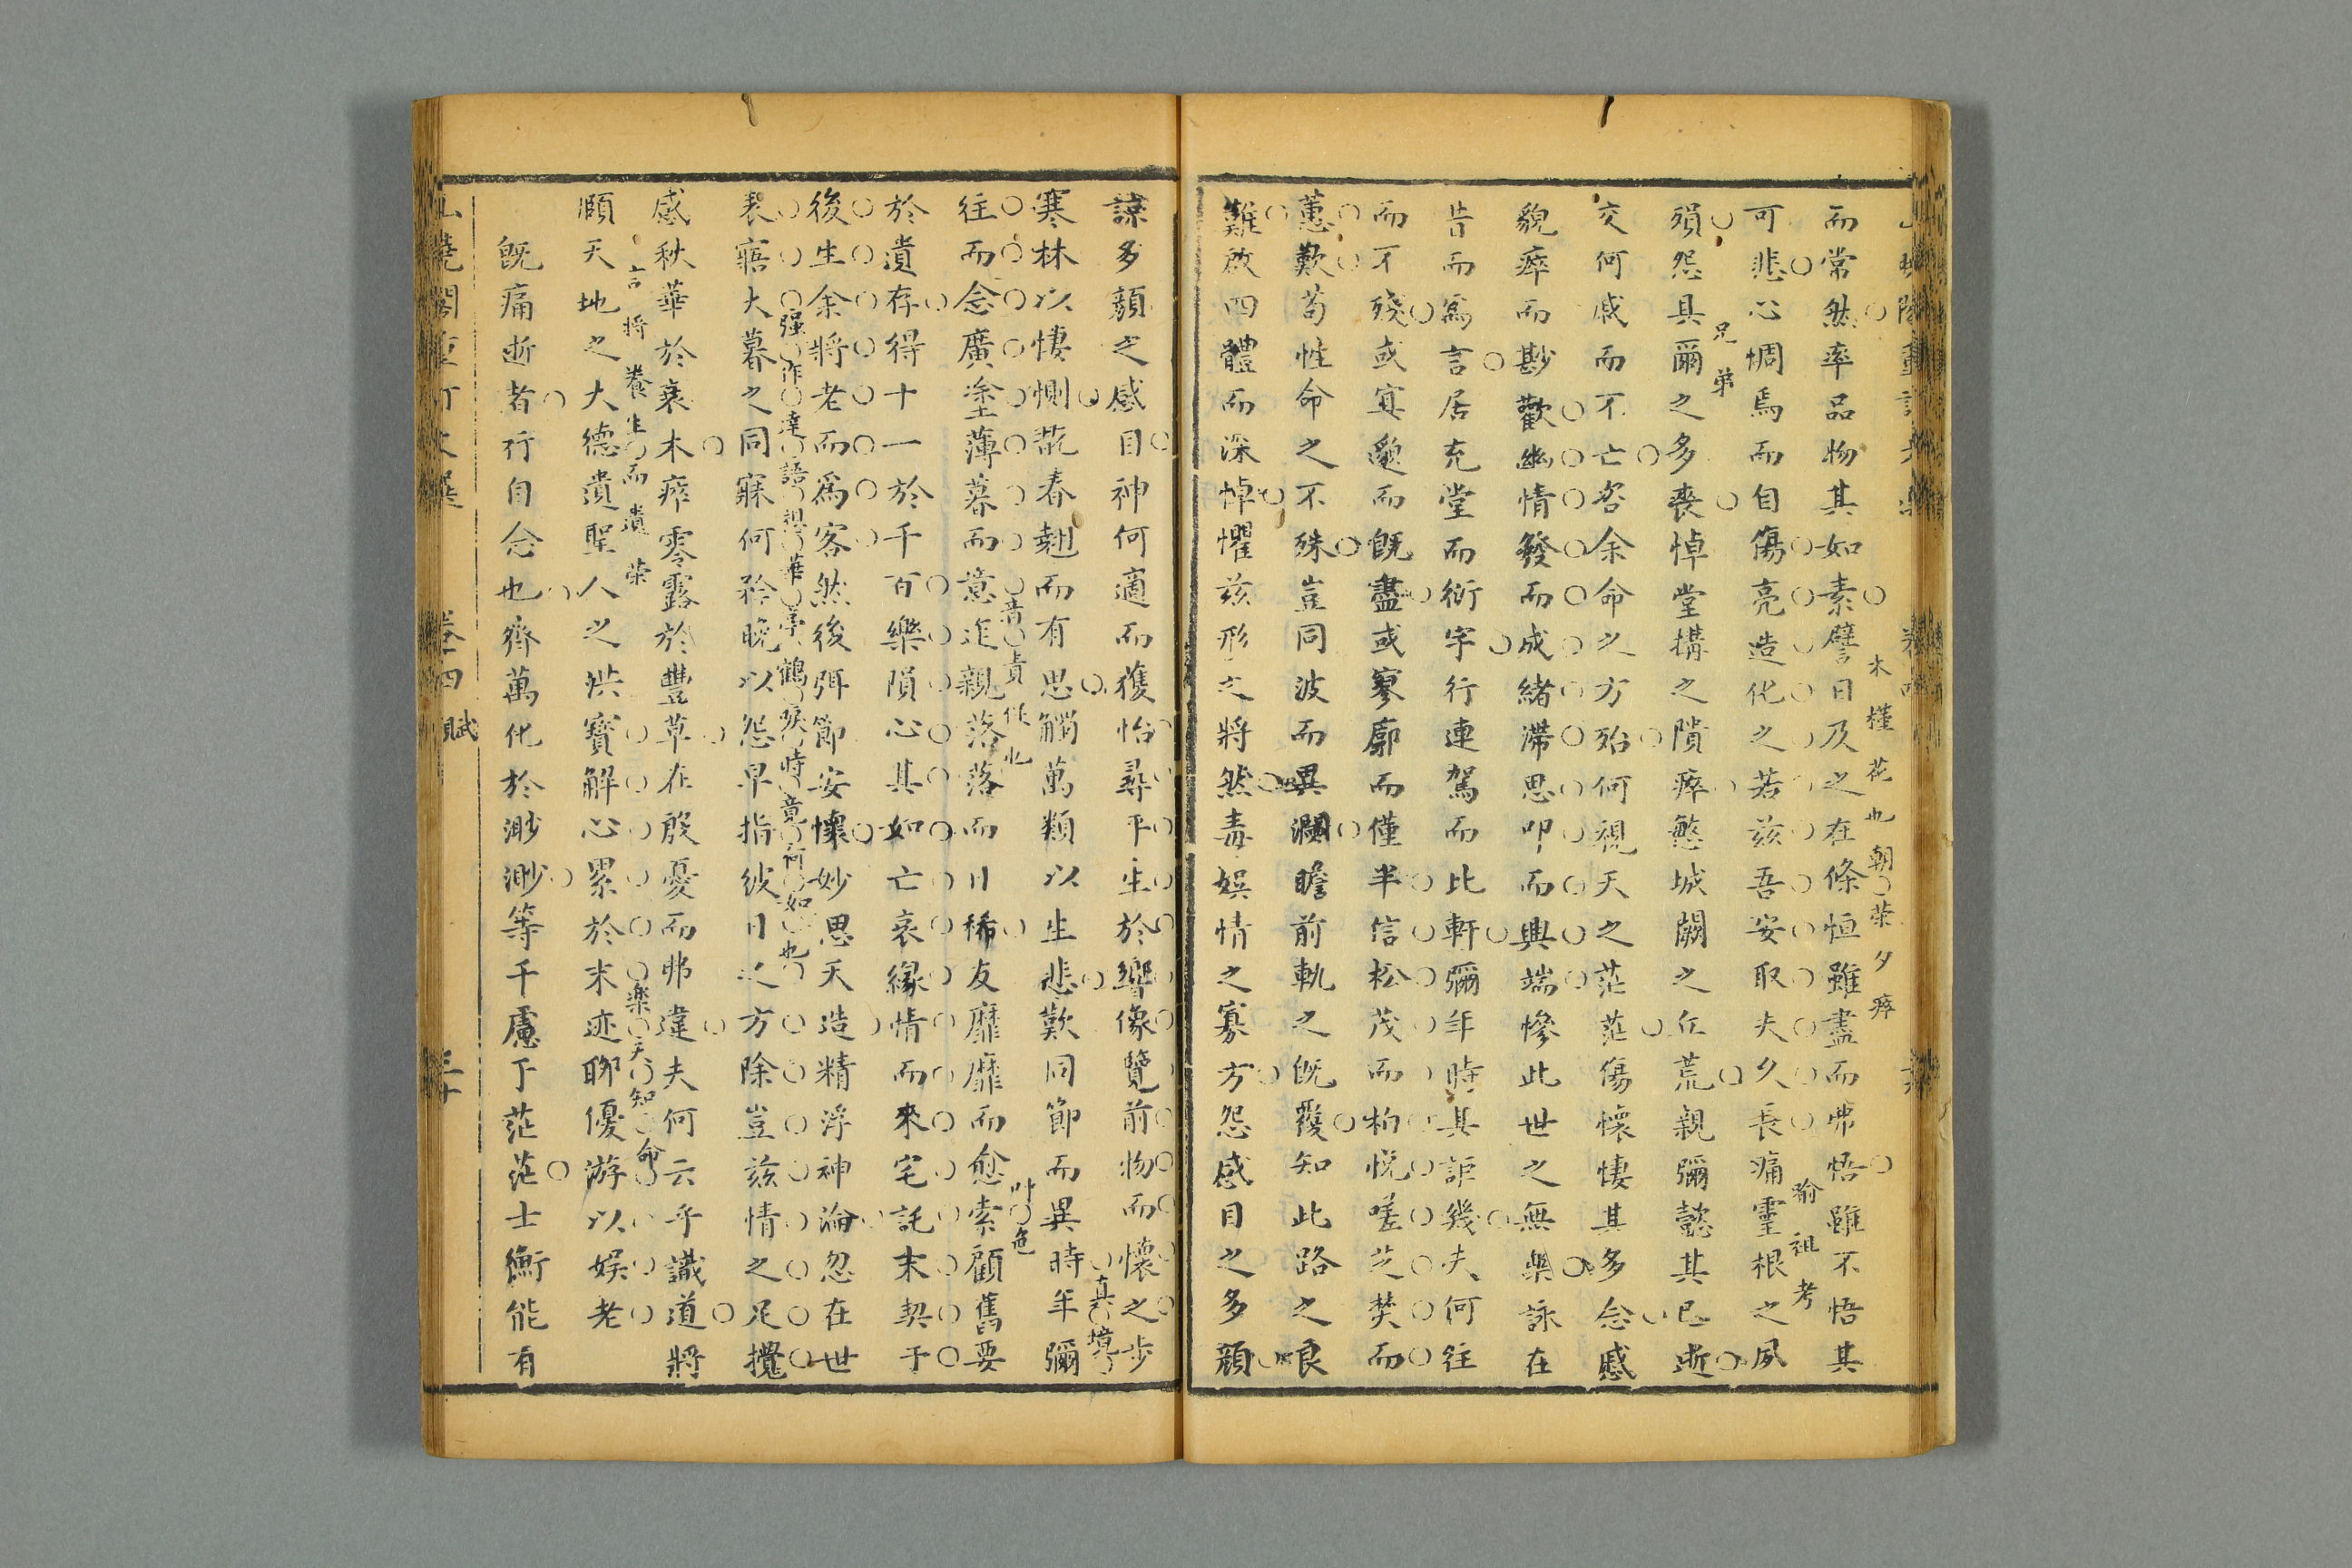 而常然率品物其如素譬日及之在條恒雖盡而弗悟雖不悟其
木槿花也朝榮夕瘁
可悲心惆焉而自傷亮造化之若茲吾安取夫久長痛靈根之夙
喻祖考
殞怨具爾之多喪悼堂搆之隤瘁慜城闕之丘荒親彌懿其已逝
兄弟
交何戚而不亡咨余命之方殆何視天之茫茫傷懷悽其多念慼
貌瘁而尠歡幽情發而成緒滯思叩而興端慘此世之無樂詠在
昔而爲言居充堂而衍宇行連駕而比軒彌年時其詎幾夫何往
而不殘或冥邈而既盡或寥廓而僅半信松茂而柏悅嗟芝焚而
蕙歎苟性命之不殊豈同波而異瀾瞻前軌之既覆知此路之良
難啟四體而深悼懼茲形之將然毒娛情之寡方怨感目之多顏
諒多顏之感目神何適而獲怡尋平生於響像覽前物而懷之步
真境
寒林以悽惻翫春翹而有思觸萬類以生悲歎同節而異時年彌
往而念廣塗薄暮而意迮親落落而日稀友靡靡而愈索顧舊要
音責 仄也
叶色
於遺存得十一於千百樂隤心其如亡哀緣情而來宅託末契于
後生余將老而爲客然後弭節安懷妙思天造精浮神淪忽在世
表寤大暮之同寐何矜晚以怨早指彼日之方除豈茲情之足攪
强作達語 華亭鶴唳時竟何如也
感秋華於衰木瘁零露於豐草在殷憂而弗違夫何云乎識道將
頤天地之大德遺聖人之洪寶解心累於末迹聊優游以娛老
言將養生而遺榮
樂天知命
既痛逝者行自念也齊萬化於渺渺等千慮于茫茫士衡能有
山曉閣重訂文選 卷四 賦 三十